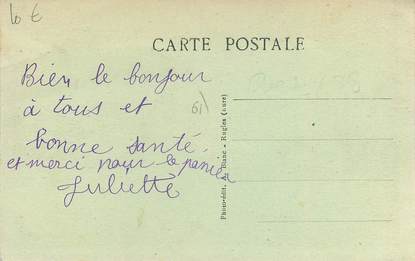 10 €
CARTE POSTALE
Bien le bonjour
à tous et
bonne santé.
et merci pour le panier
Juliette
61
Photo-édit. Blanc - Rugles (Eure)